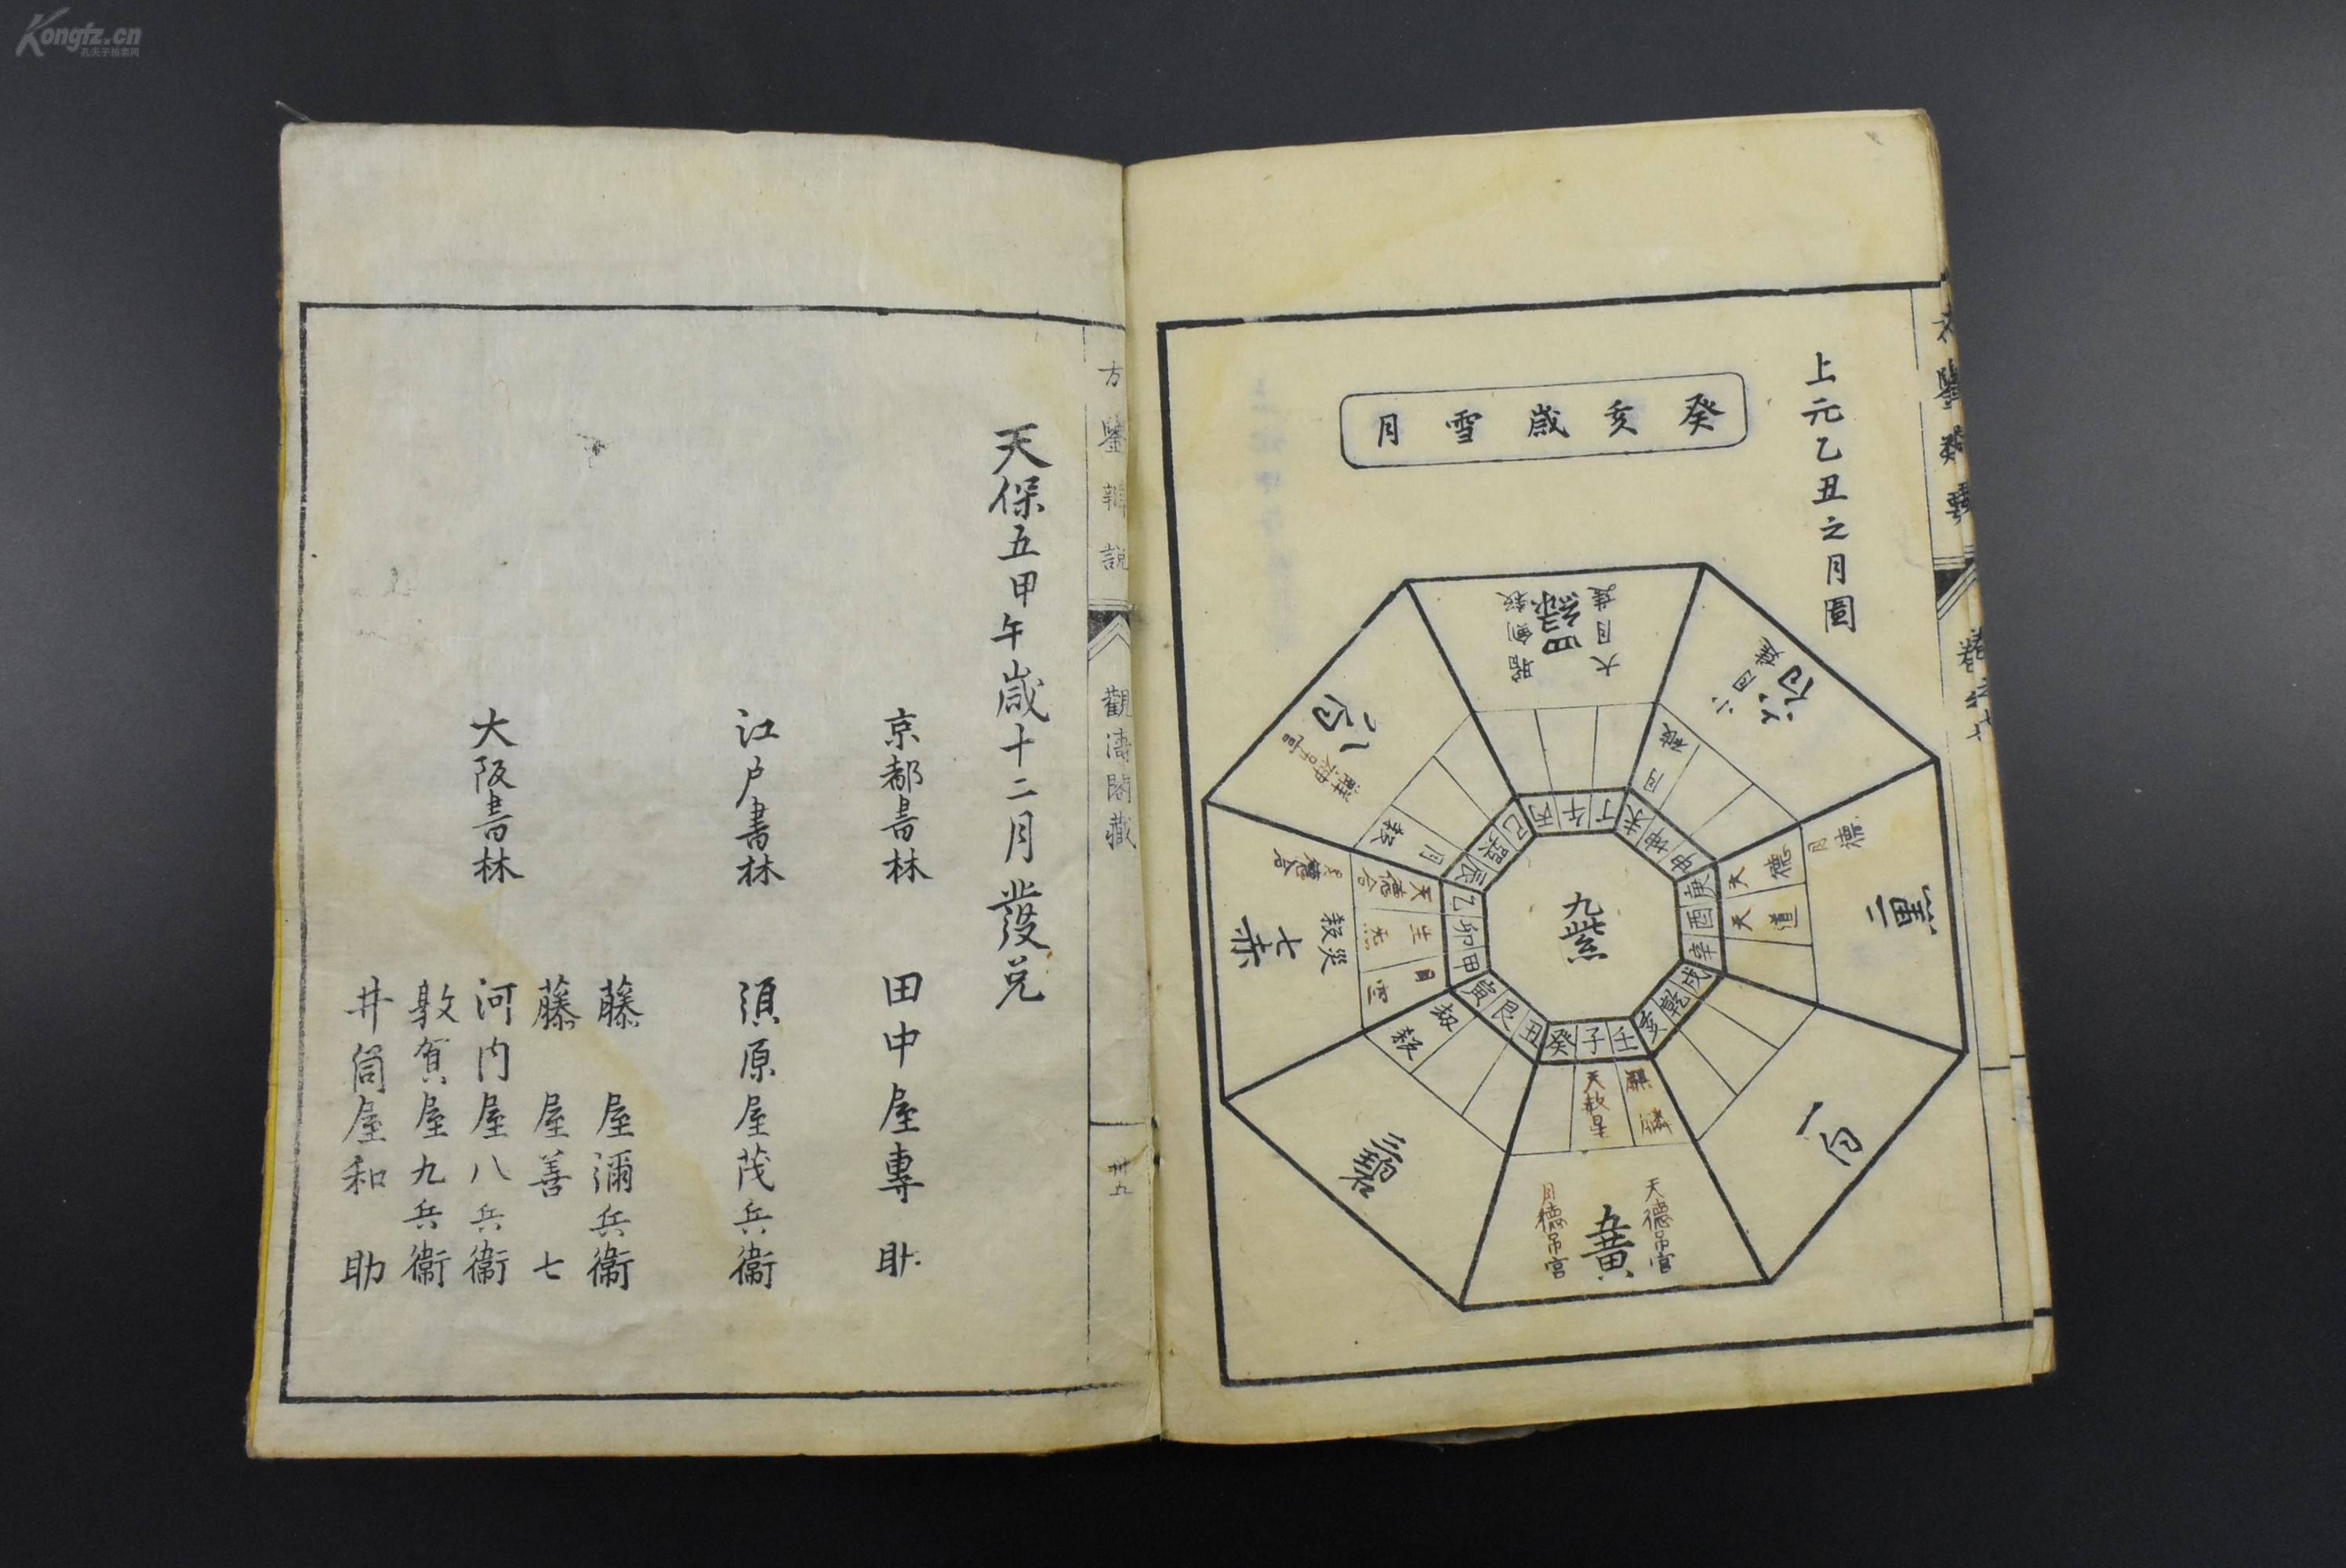 Kongfz.cn
孔夫子拍卖网
上元乙丑之月圖
癸亥歲雪月
九紫
四綠
大月建
暗劍殺
六白
小月建
二黑
月德
天德
天道
一白
五黃
天德吊宮
月德吊宮
麒麟
天赦星
三碧
七赤
災殺
天德合
生炁
月空
八白
月殺
丙午丁
未坤申
庚酉辛
戌乾亥
壬子癸
丑艮寅
甲卯乙
辰巽巳
方鑒辨說
觀濤閣藏
卅五
天保五甲午歲十二月發兌
京都書林
田中屋專助
江戶書林
須原屋茂兵衞
大阪書林
藤屋彌兵衞
藤屋善七
河內屋八兵衞
敦賀屋九兵衞
井筒屋和助